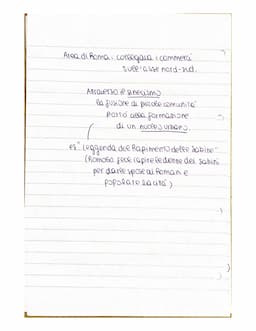 Area di Roma: collegava i commerci
sull'asse nord-sud.
Attraverso il sinecismo
la fusione di piccole comunità
portò alla formazione
di un nucleo urbano.
es "Leggenda del Rapimento delle Sabine"
(Romolo fece rapire le donne dei Sabini
per darle spose ai Romani e
popolare la città)